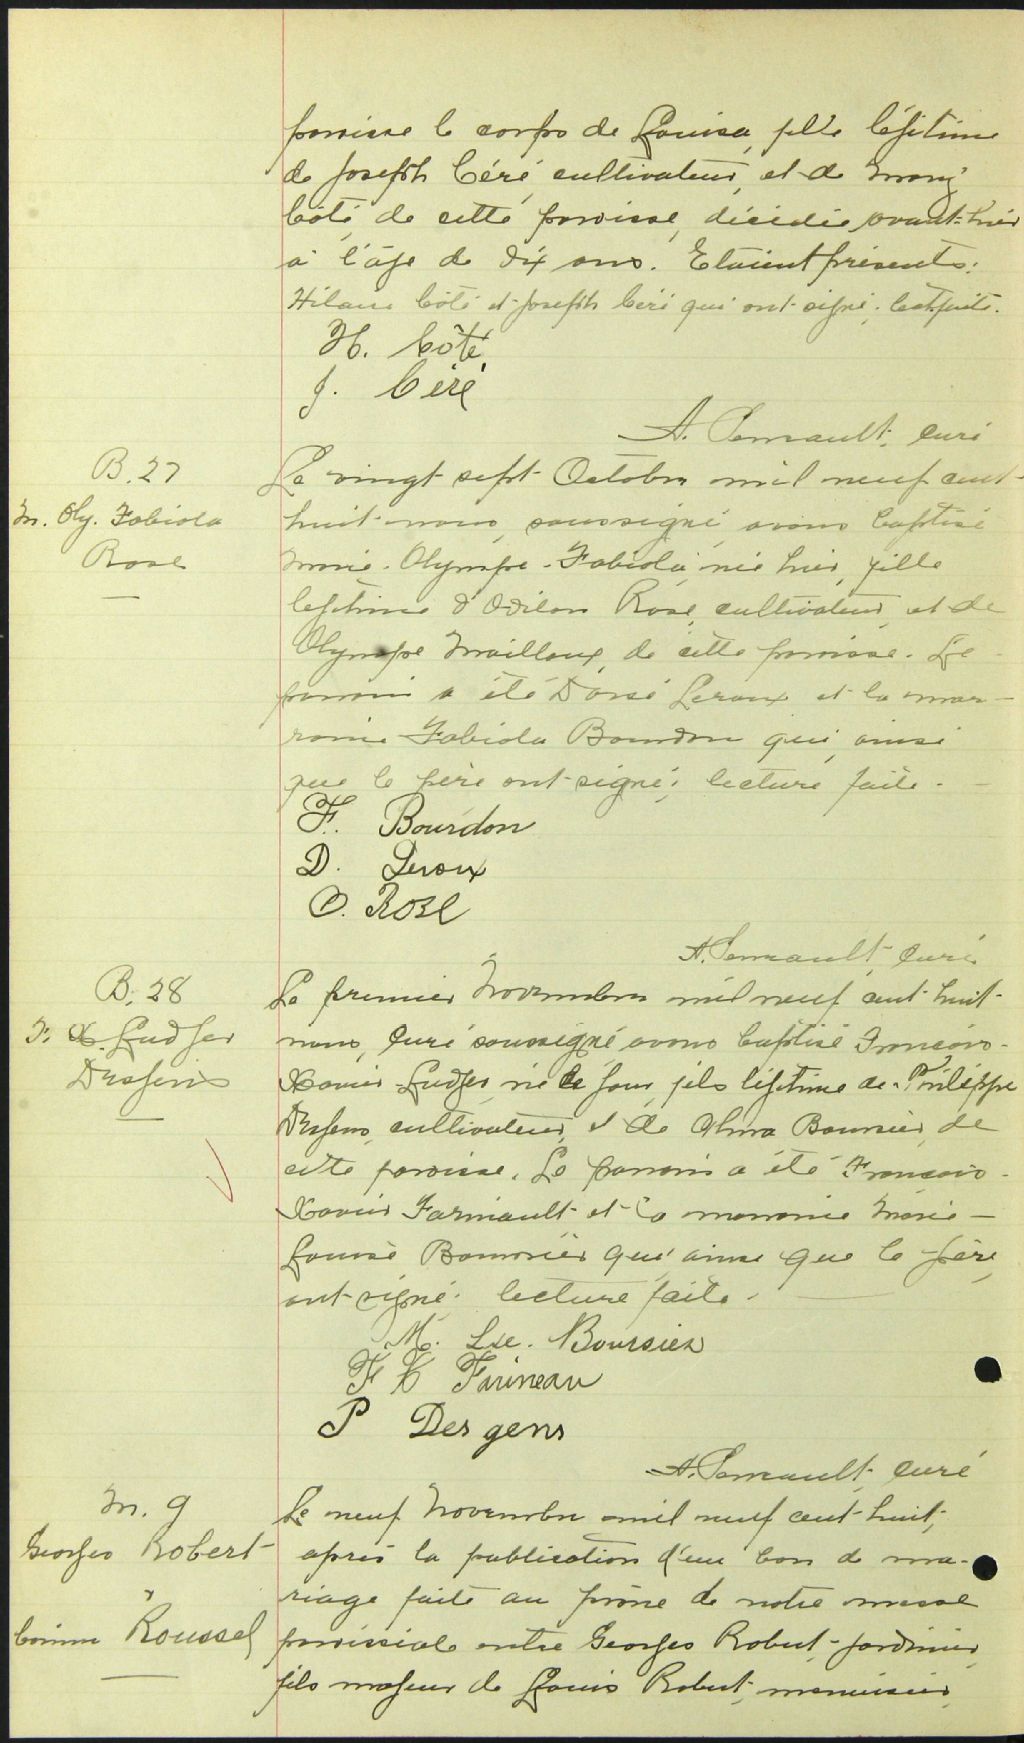 paroisse le corps de Louisa, fille légitime
de Joseph Céré, cultivateur, et de Mary
Côté, de cette paroisse, décédée avant-hier
à l'âge de dix ans. Etaient présents:
Hilaire Côté et Joseph Céré qui ont signé. Lect. faite.
H. Côté
J. Céré
A. Perreault, curé
B. 27
M. Oly. Fabiola
Rose
Le vingt sept Octobre mil neuf cent
huit nous, soussigné, avons baptisé
Marie-Olympe-Fabiola, née hier, fille
légitime d'Odilon Rose, cultivateur, et de
Olympe Mailloux, de cette paroisse. Le
parrain a été Dorsé Leroux et la mar-
raine Fabiola Bourdon qui, ainsi
que le père ont signé; lecture faite.
F. Bourdon
D. Leroux
O. Rose
A. Perreault, curé
B. 28
F. X. Ludger
Desgens
Le premier Novembre mil neuf cent huit
nous, curé soussigné, avons baptisé François-
Xavier-Ludger, né ce jour, fils légitime de Philippe
Desgens, cultivateur, et de Alma Boursier, de
cette paroisse. Le parrain a été François-
Xavier Farineault et la marraine Marie-
Louise Boursier qui, ainsi que le père,
ont signé; lecture faite.
M. Lse. Boursier
F X Farineau
P Desgens
A. Perreault, curé
M. 9
Georges Robert
&
Corinne Roussel
Le neuf Novembre mil neuf cent huit,
après la publication d'un ban de ma-
riage faite au prône de notre messe
paroissiale entre Georges Robert, jardinier,
fils majeur de Louis Robert, menuisier,